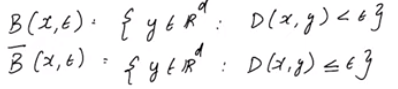 B(x,ϵ) = { y ∈ ℝ^d : D(x,y) < ϵ }
B̅(x,ϵ) = { y ∈ ℝ^d : D(x,y) ≤ ϵ }